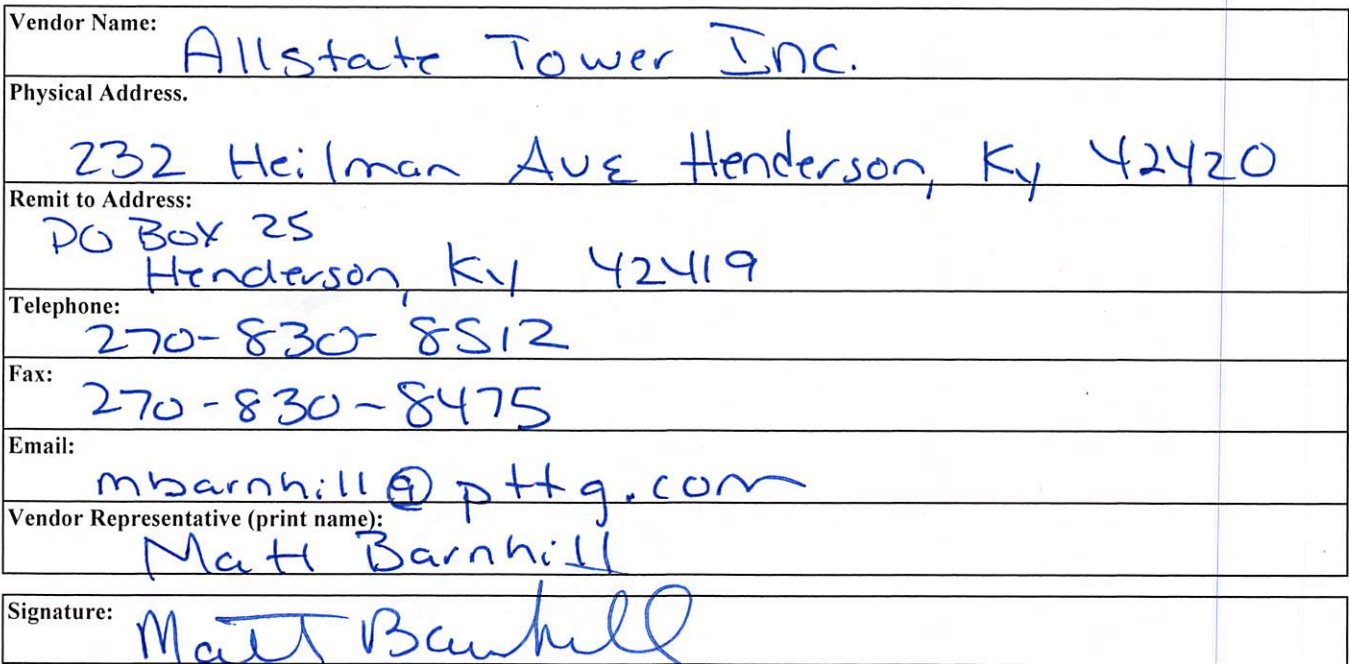 Vendor Name:
Allstate Tower Inc.
Physical Address.
232 Heilman Ave Henderson, Ky 42420
Remit to Address:
PO Box 25
Henderson, Ky 42419
Telephone:
270-830-8512
Fax:
270-830-8475
Email:
mbarnhill@pttg.com
Vendor Representative (print name):
Matt Barnhill
Signature:
Matt Barnhill